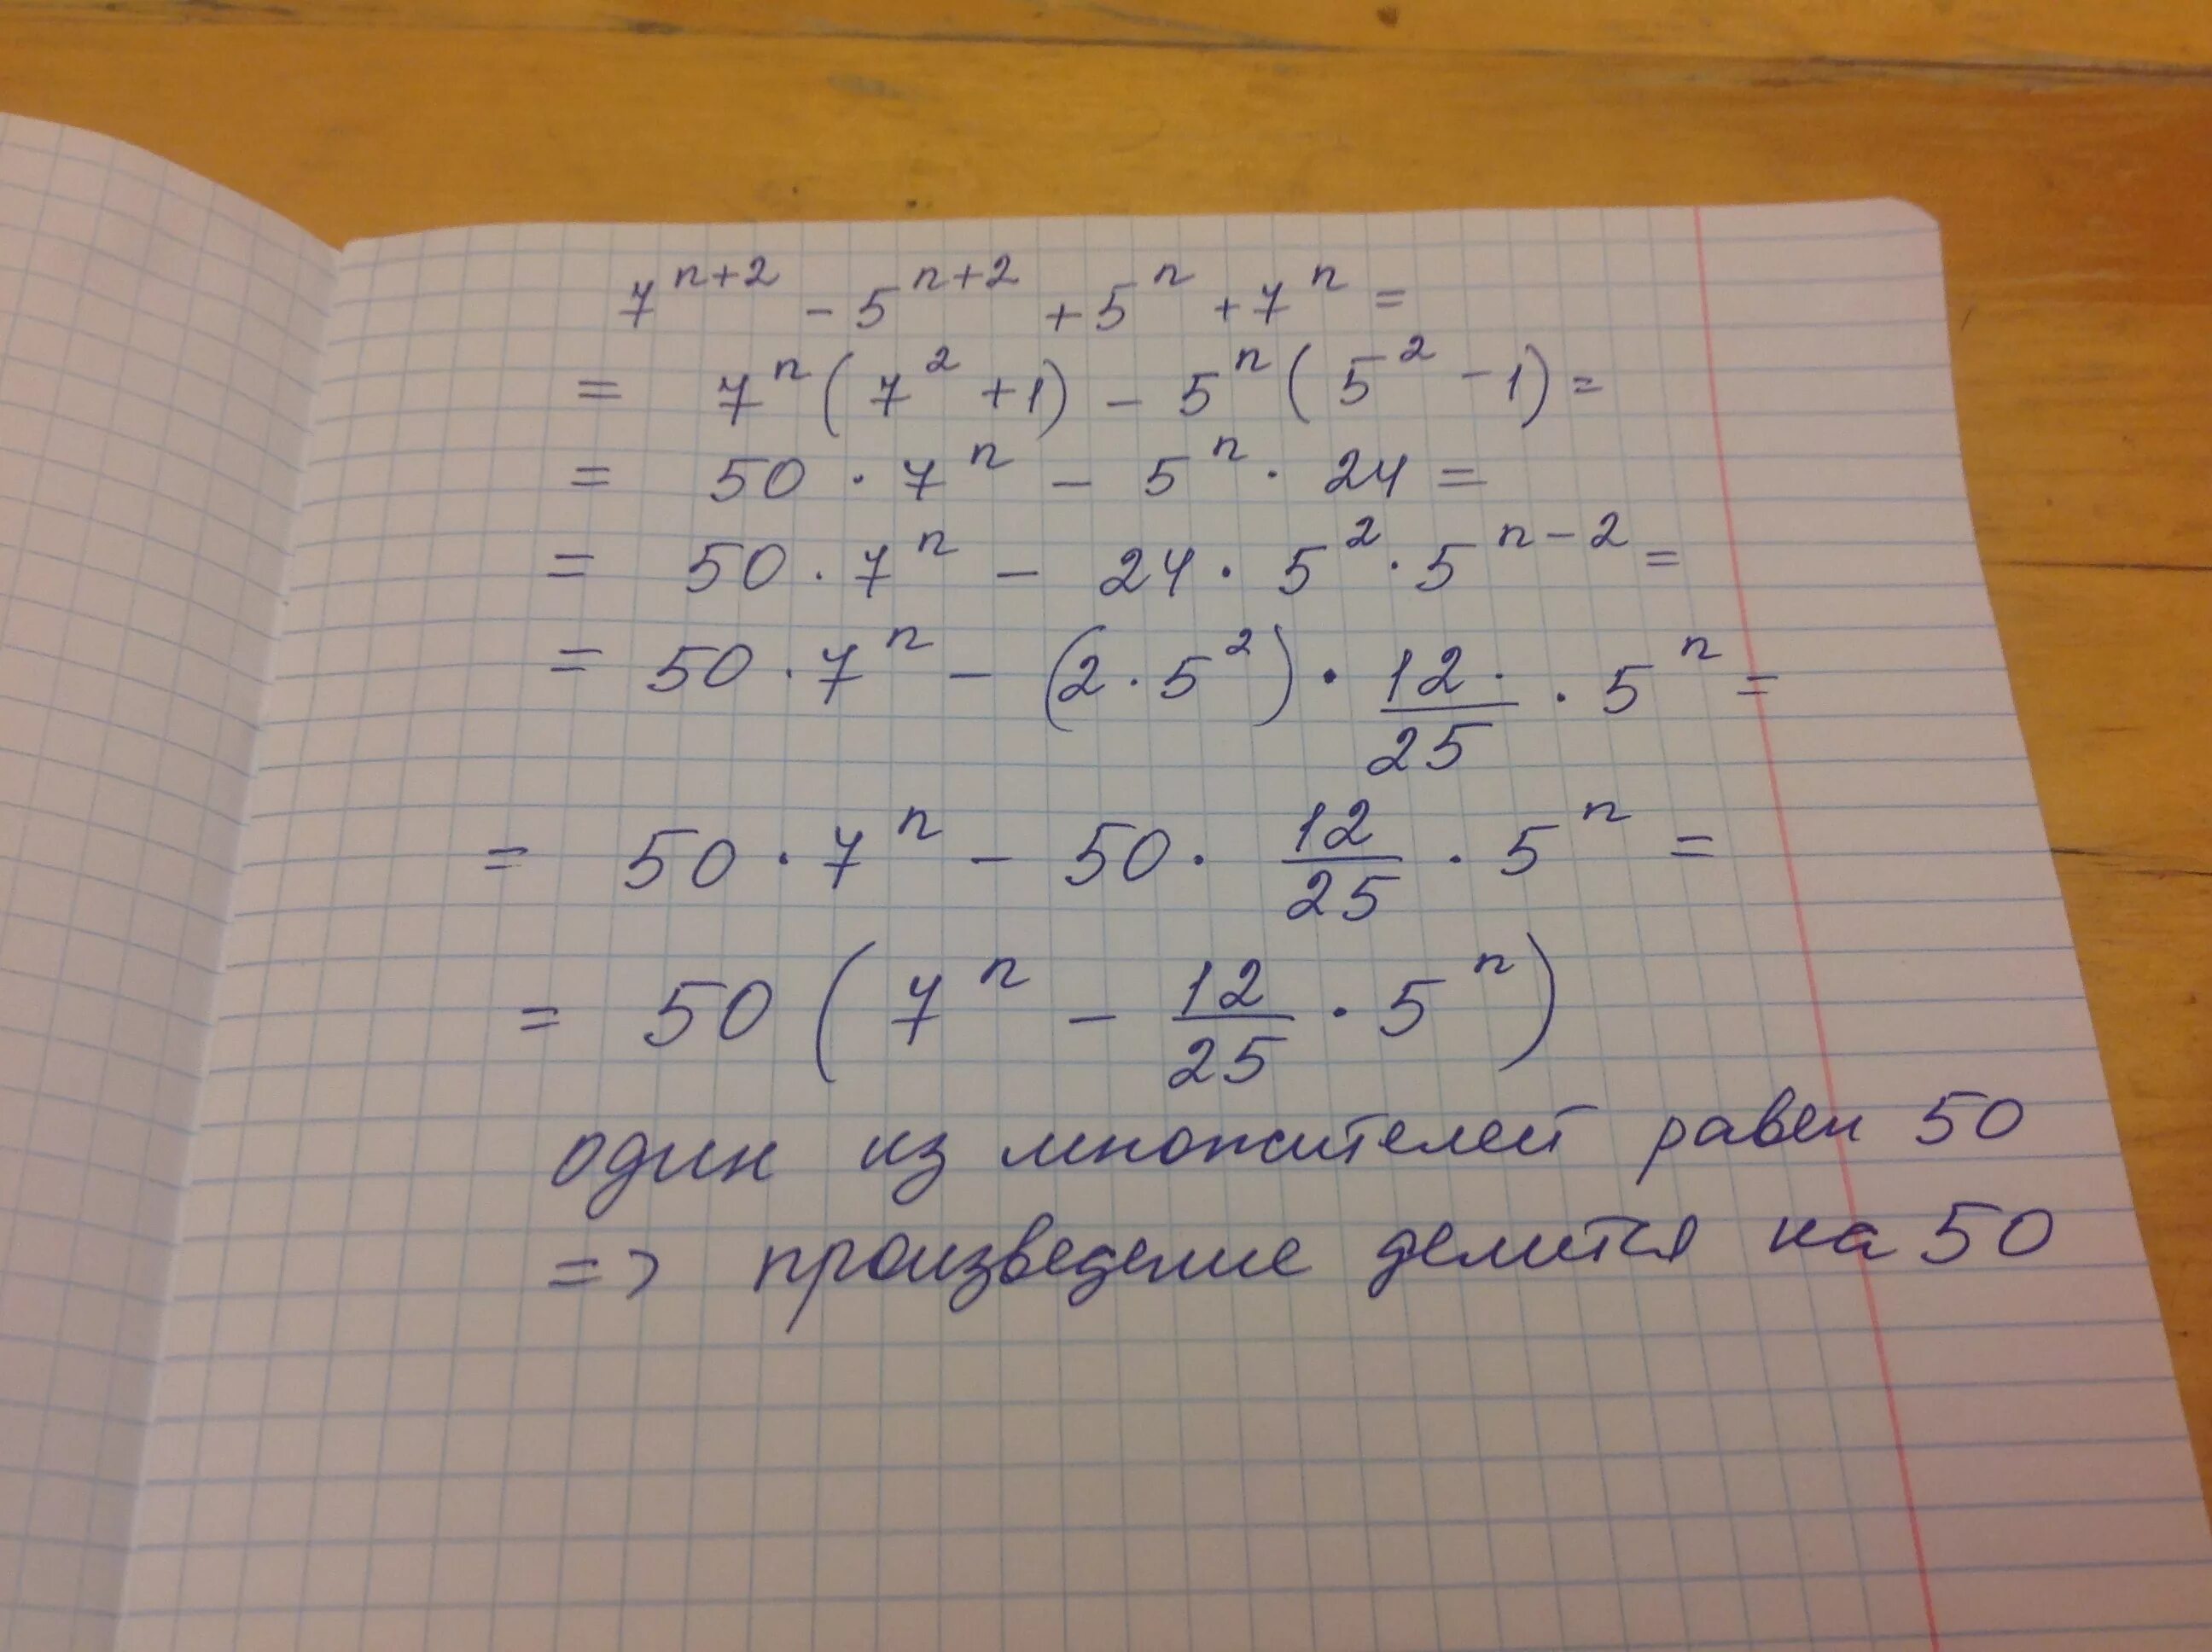 7^{n+2} - 5^{n+2} + 5^n + 7^n =
= 7^n (7^2 + 1) - 5^n (5^2 - 1) =
= 50 · 7^n - 5^n · 24 =
= 50 · 7^n - 24 · 5^2 · 5^{n-2} =
= 50 · 7^n - (2 · 5^2) · \frac{12 ·}{25} · 5^n =
= 50 · 7^n - 50 · \frac{12}{25} · 5^n =
= 50 (7^n - \frac{12}{25} · 5^n)
один из множителей равен 50
=> произведение делится на 50